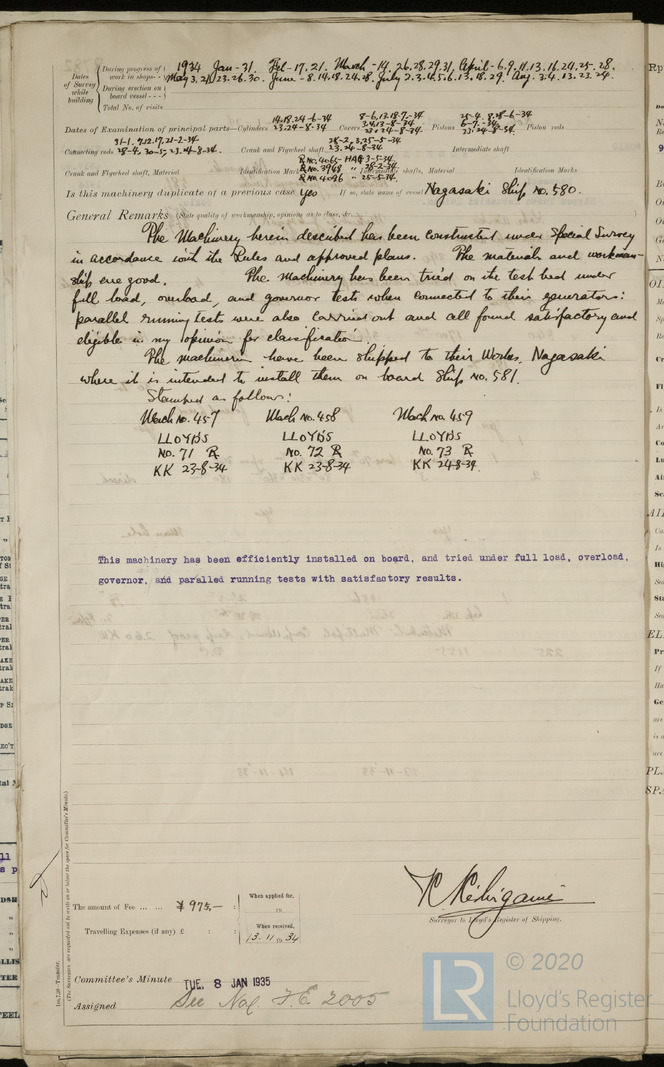 Dates of Survey while building
During progress of work in shops - - 1934 Jan-31. Feb-17.21. March-14.26.28.29.31, April-6.9.11.13.16.24.25-28.
May 3.21.23.26.30. June-8.14.18.24.28. July 2.3.4.5.6.13.18.29. Aug. 3.4.13.23.24.
During erection on board vessel - - -
Total No. of visits
Dates of Examination of principal parts—Cylinders 14.18.24-6-34 23.24-8-34 Covers Pistons Piston rods
Connecting rods Crank and Flywheel shaft 23.24-8-34 Intermediate shaft
Crank and Flywheel shaft, Material Identification Mark R No. 4065-HAG 3-5-34 Intermediate shafts, Material Identification Marks
R No. 3948 " 28-2-34
R No. 4096 " 25-5-34
Is this machinery duplicate of a previous case yes If so, state name of vessel Nagasaki Ship No. 580.
General Remarks (State quality of workmanship, opinions as to class, &c.
The Machinery herein described has been constructed under Special Survey
in accordance with the Rules and approved plans. The materials and workman-
ship are good. The Machinery has been tried on the test bed under
full load, overload, and governor tests when connected to their generators:
parallel running tests were also carried out and all found satisfactory and
eligible in my opinion for classification
The machineries have been shipped to their Works, Nagasaki
where it is intended to install them on board Ship No. 581.
Stamped as follows:
Mach No. 457 Mach No. 458 Mach No. 459
LLOYDS LLOYDS LLOYDS
No. 71 R No. 72 R No. 73 R
KK 23-8-34 KK 23-8-34 KK 24-8-34
This machinery has been efficiently installed on board, and tried under full load, overload,
governor, and paralled running tests with satisfactory results.
K Kishigami
Surveyor to Lloyd's Register of Shipping.
The amount of Fee ... ... ¥ 975.— : When applied for,
Travelling Expenses (if any) £ : : When received,
13.11 19 34
Committee's Minute TUE. 8 JAN 1935
Assigned See Nag. F.E. 2005
(The Surveyors are requested not to write on or below the space for Committee's Minute.)
LR
© 2020
Lloyd's Register
Foundation